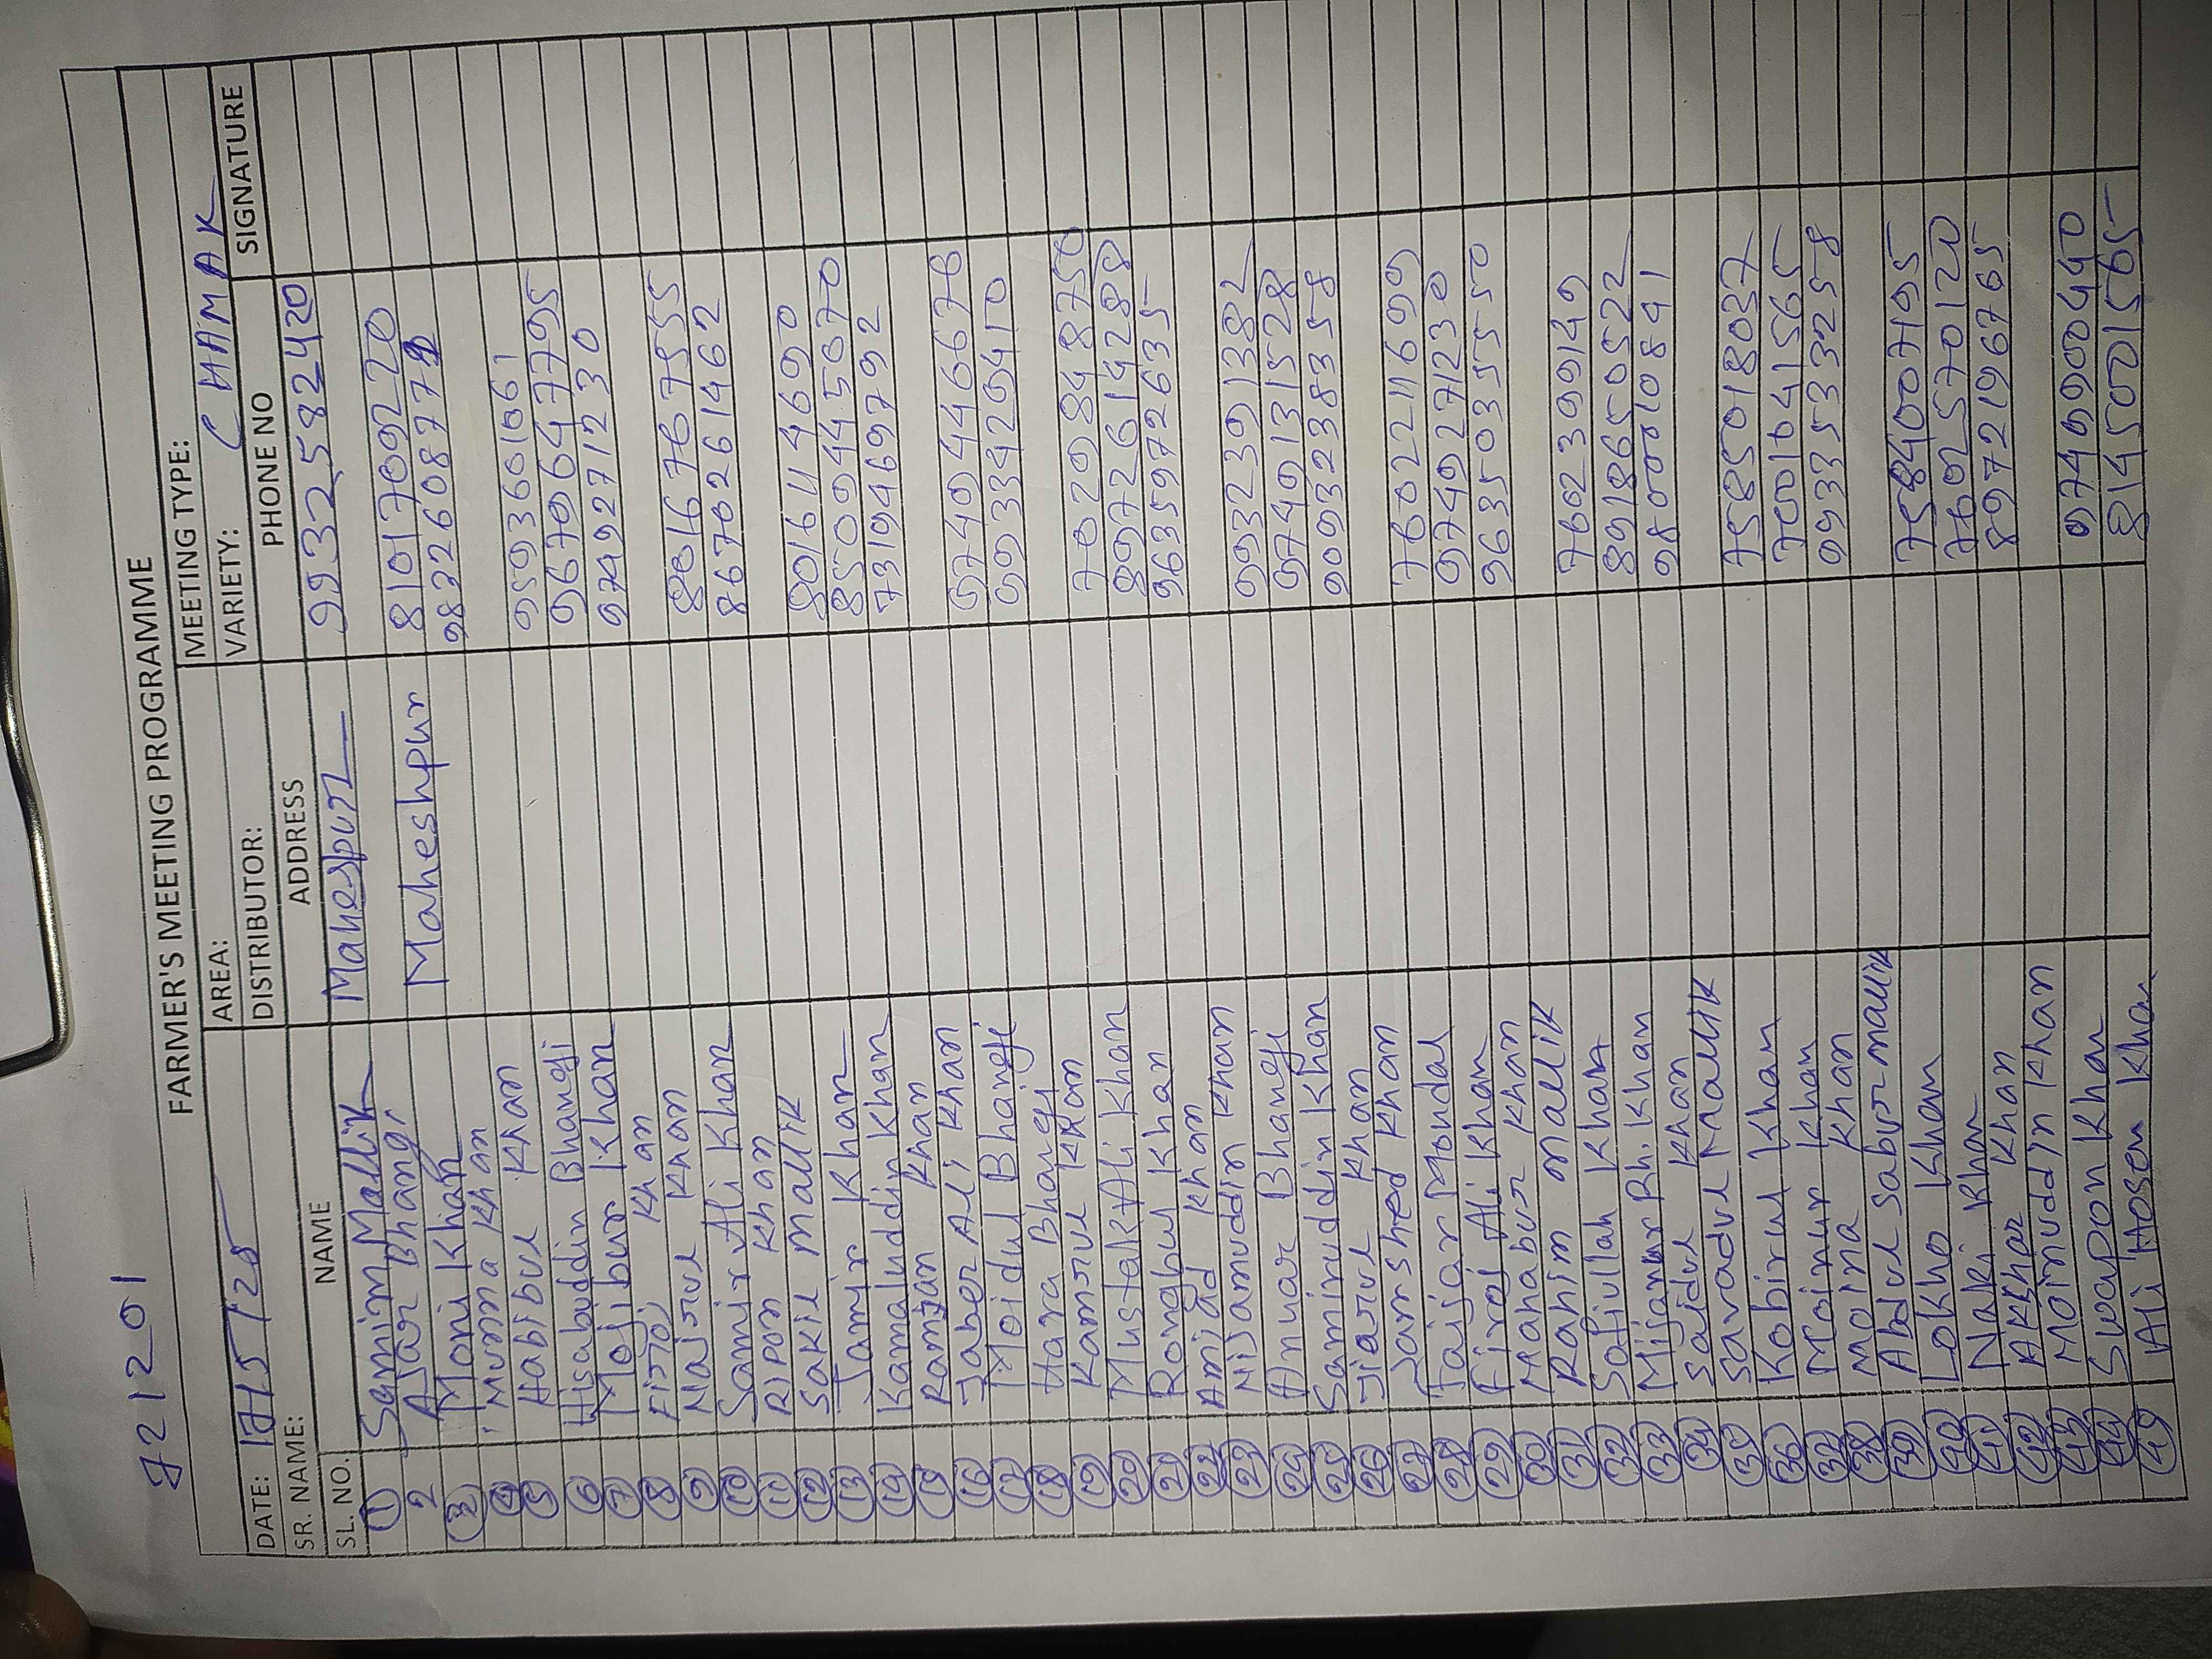 721201
FARMER'S MEETING PROGRAMME
DATE: AREA: MEETING TYPE:
SR. NAME: DISTRIBUTOR: VARIETY: CHAMAK
SL. NO. NAME ADDRESS PHONE NO SIGNATURE
1 Samim Mallik Mahespur 9932582420
2 Ajar Bhangi 8101709220
3 Moni Khan Maheshpur 983260877
4 Munna Khan
5 Habibul Khan 9593601061
6 Hisabuddin Bhangi 9679647795
7 Mojibur Khan 9749271230
8 Firoj Khan
9 Najrul Khan 8016767955
10 Samir Ali Khan 8670261462
11 Ripon Khan
12 Sakil Mallik 8016114690
13 Jamir Khan 8509445070
14 Kamaluddin Khan 7319469792
15 Ramjan Khan
16 Jaber Ali Khan 9749446676
17 Moidul Bhangi 9933429410
18 Hara Bhangi
19 Kamrul Khan 7029848750
20 Mustak Ali Khan 8972614288
21 Rongbul Khan 9635972635
22 Amjad Khan
23 Nijamuddin Khan 9932391382
24 Anuar Bhangi 9749131528
25 Samiruddin Khan 9093238358
26 Jiarul Khan
27 Jamshed Khan 7602211699
28 Jaijar Mondal 9749271230
29 Firoj Ali Khan 9635035550
30 Mahabur Khan
31 Rahim Mallik 7602399149
32 Safiullah Khan 8918650522
33 Mijanur Rh. Khan 9800010841
34 Saidul Khan
35 Saradul Mallik 7585018037
36 Kobirul Khan 7001641565
37 Moinur Khan 9933533258
38 Moina Khan
39 Abdul Sabur mallik 7584007195
40 Lokho Khan 7602570120
41 Naki Khan 8972196765
42 Akkhar Khan
43 Moinuddin Khan 9749900440
44 Swapon Khan 8145001565
49 Ali Hosen Khan